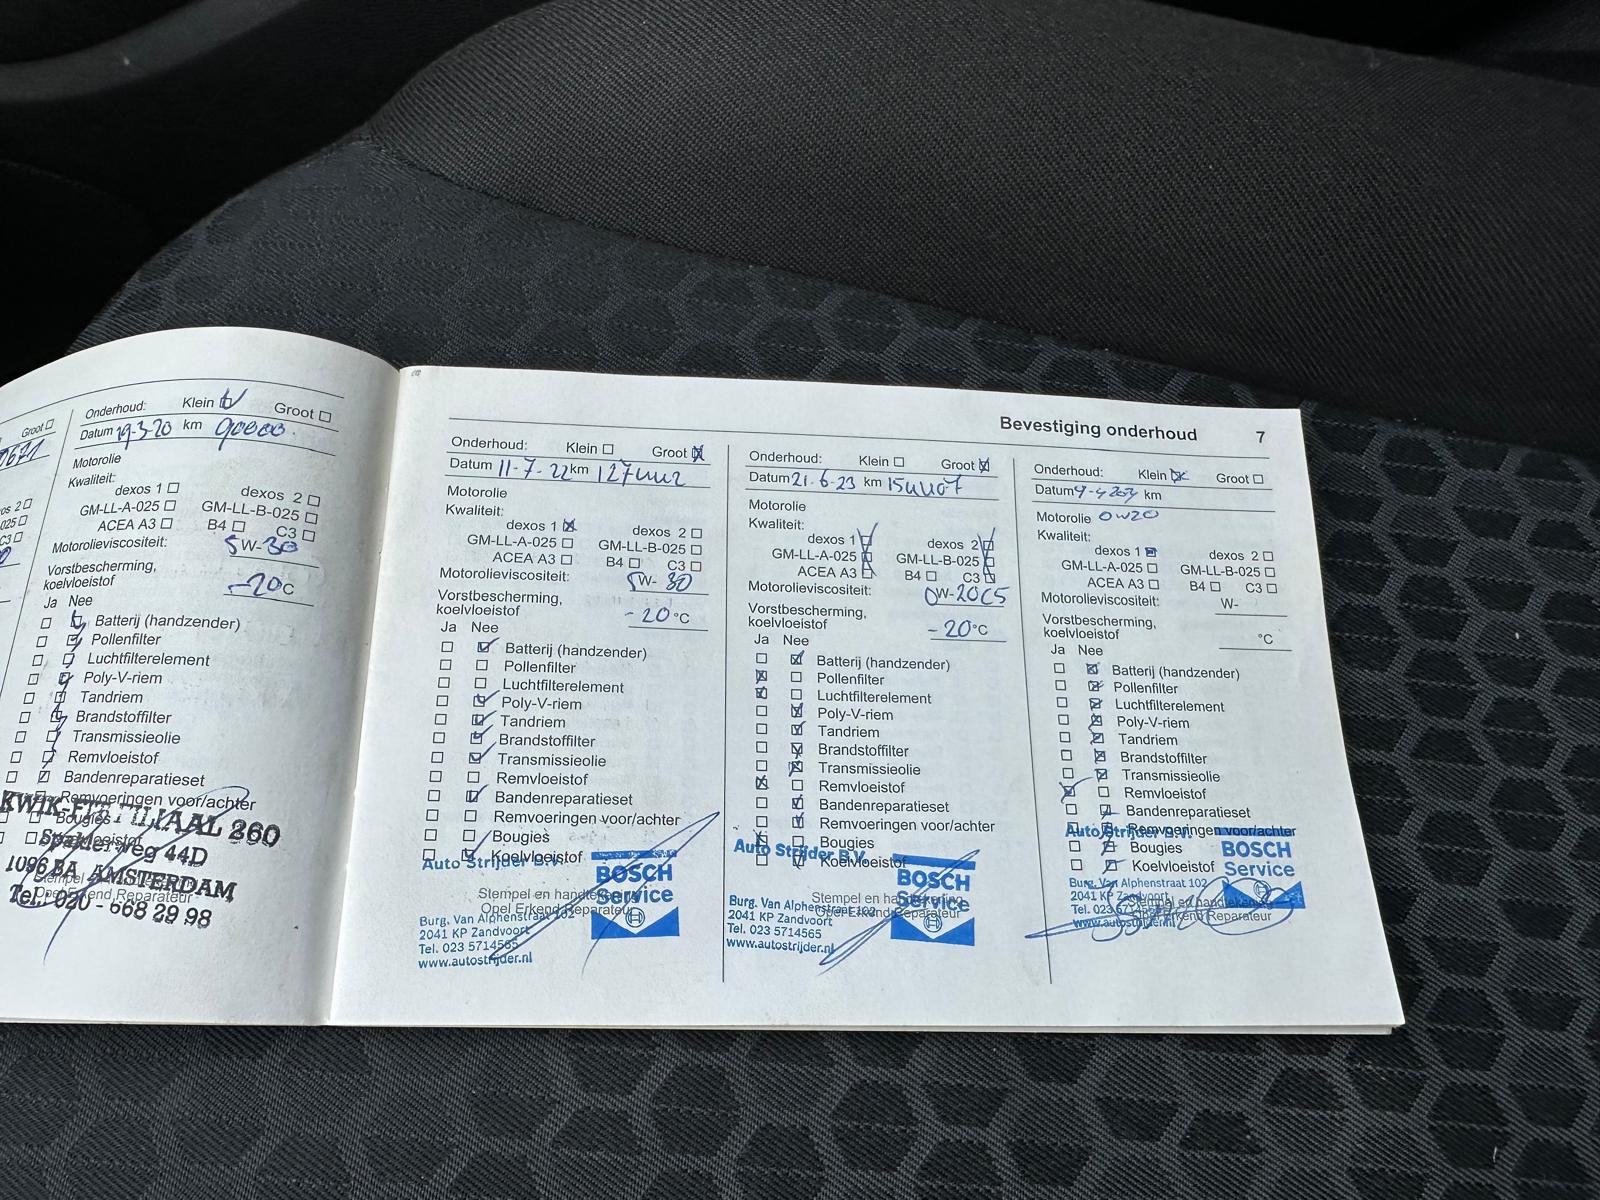 Groot
Onderhoud: Klein Groot
Datum 19-3-20 km 90000.
Motorolie
Kwaliteit:
dexos 1 dexos 2
GM-LL-A-025 GM-LL-B-025
ACEA A3 B4 C3
Motorolieviscositeit: 5W-30
Vorstbescherming,
koelvloeistof -20°C
Ja Nee
Batterij (handzender)
Pollenfilter
Luchtfilterelement
Poly-V-riem
Tandriem
Brandstoffilter
Transmissieolie
Remvloeistof
Bandenreparatieset
Remvoeringen voor/achter
Bougies
KWIK-FIT FILIAAL 260
Spaklerweg 44D
1096 BA AMSTERDAM
Tel.: 020 - 668 29 98
Opel Erkend Reparateur
Bevestiging onderhoud 7
Onderhoud: Klein Groot
Datum 11-7-22 km
Motorolie
Kwaliteit:
dexos 1 dexos 2
GM-LL-A-025 GM-LL-B-025
ACEA A3 B4 C3
Motorolieviscositeit: 5W-30
Vorstbescherming,
koelvloeistof -20°C
Ja Nee
Batterij (handzender)
Pollenfilter
Luchtfilterelement
Poly-V-riem
Tandriem
Brandstoffilter
Transmissieolie
Remvloeistof
Bandenreparatieset
Remvoeringen voor/achter
Bougies
Koelvloeistof
Auto Strijder B.V.
BOSCH
Service
Stempel en handtekening
Opel Erkend Reparateur
Burg. Van Alphenstraat 102
2041 KP Zandvoort
Tel. 023 5714565
www.autostrijder.nl
Onderhoud: Klein Groot
Datum 21-6-23 km
Motorolie
Kwaliteit:
dexos 1 dexos 2
GM-LL-A-025 GM-LL-B-025
ACEA A3 B4 C3
Motorolieviscositeit: 0W-20C5
Vorstbescherming,
koelvloeistof -20°C
Ja Nee
Batterij (handzender)
Pollenfilter
Luchtfilterelement
Poly-V-riem
Tandriem
Brandstoffilter
Transmissieolie
Remvloeistof
Bandenreparatieset
Remvoeringen voor/achter
Bougies
Koelvloeistof
Auto Strijder B.V.
BOSCH
Service
Stempel en handtekening
Opel Erkend Reparateur
Burg. Van Alphenstraat 102
2041 KP Zandvoort
Tel. 023 5714565
www.autostrijder.nl
Onderhoud: Klein Groot
Datum km
Motorolie 0W20
Kwaliteit:
dexos 1 dexos 2
GM-LL-A-025 GM-LL-B-025
ACEA A3 B4 C3
Motorolieviscositeit: W-
Vorstbescherming,
koelvloeistof °C
Ja Nee
Batterij (handzender)
Pollenfilter
Luchtfilterelement
Poly-V-riem
Tandriem
Brandstoffilter
Transmissieolie
Remvloeistof
Bandenreparatieset
Remvoeringen voor/achter
Bougies
Koelvloeistof
Auto Strijder B.V.
BOSCH
Service
Burg. Van Alphenstraat 102
2041 KP Zandvoort
Stempel en handtekening
Opel Erkend Reparateur
www.autostrijder.nl